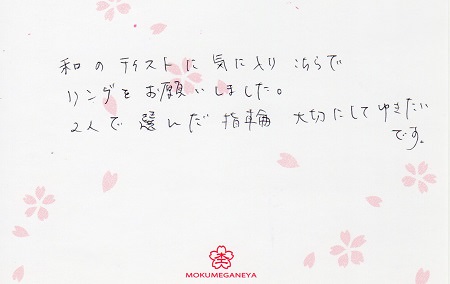 和のテイストに気に入り こちらで
リングをお願いしました。
2人で選んだ指輪 大切にしてゆきたい
です。
MOKUMEGANEYA